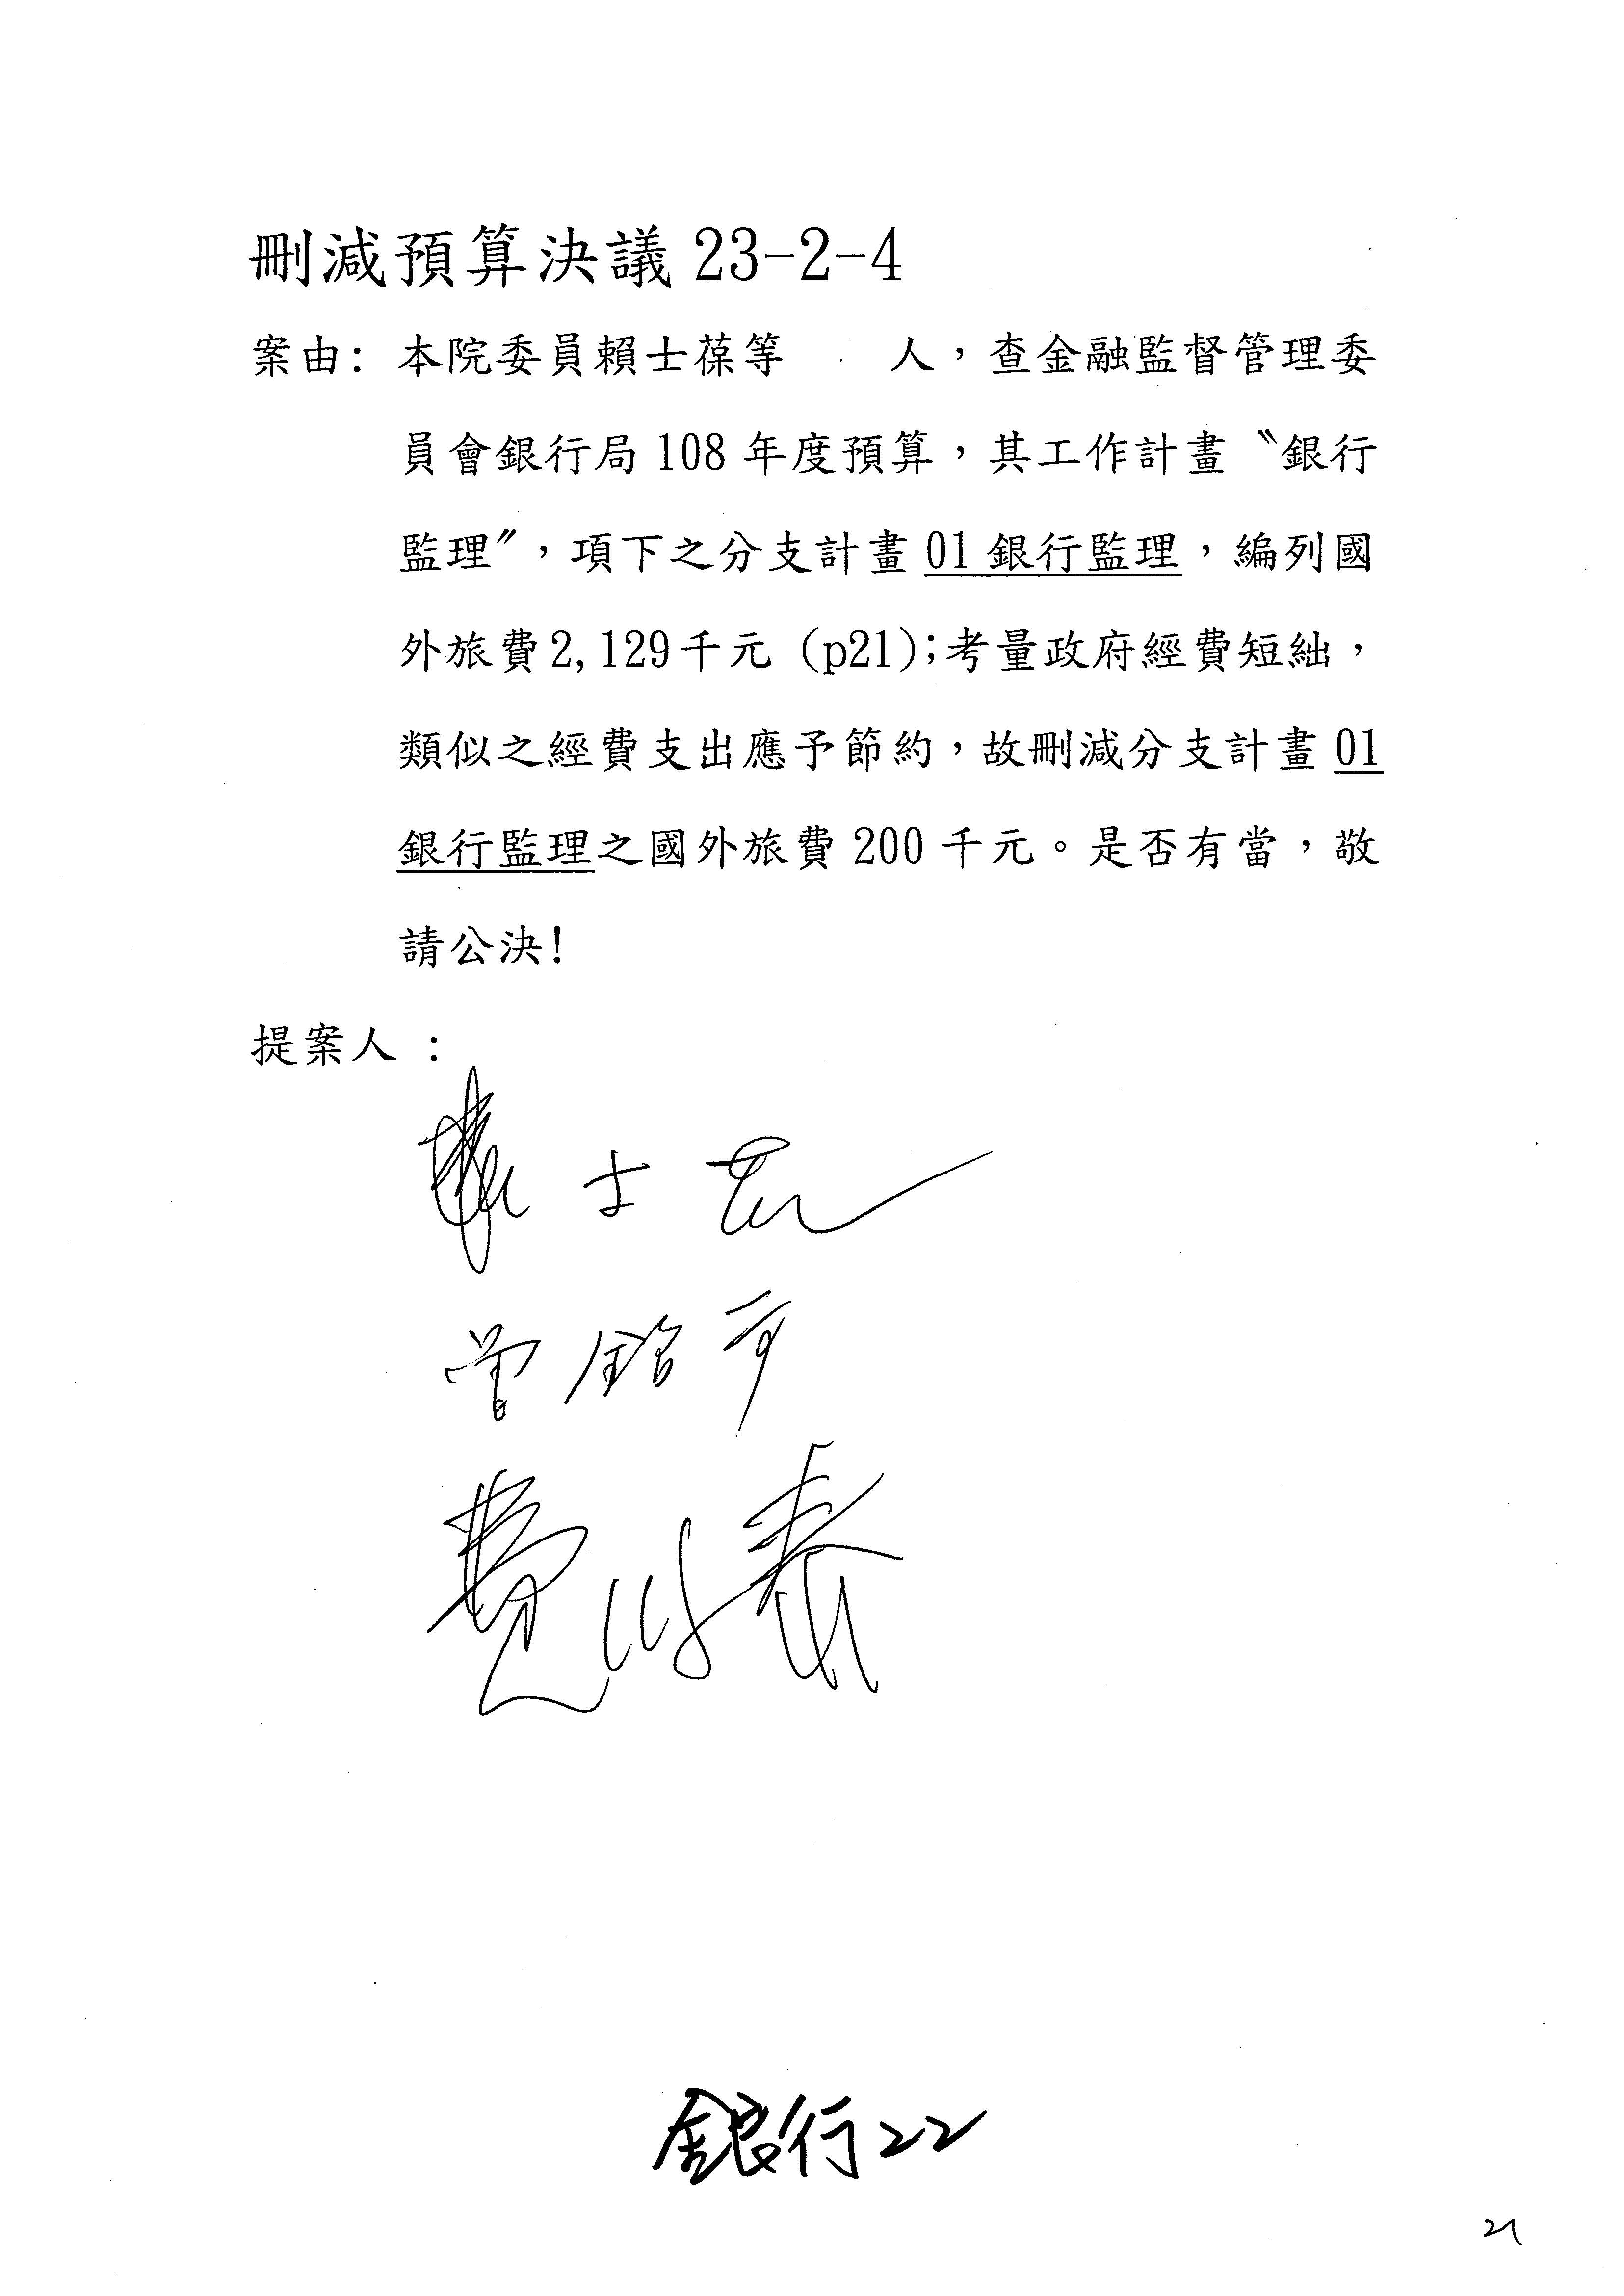 刪減預算決議 23-2-4
案由: 本院委員賴士葆等 人，查金融監督管理委
員會銀行局 108 年度預算，其工作計畫〝銀行
監理〞，項下之分支計畫 01 銀行監理，編列國
外旅費 2,129 千元 (p21);考量政府經費短絀，
類似之經費支出應予節約，故刪減分支計畫 01
銀行監理之國外旅費 200 千元。是否有當，敬
請公決!
提案人 :
賴士葆
曾銘宗
費鴻泰
銀行22
21